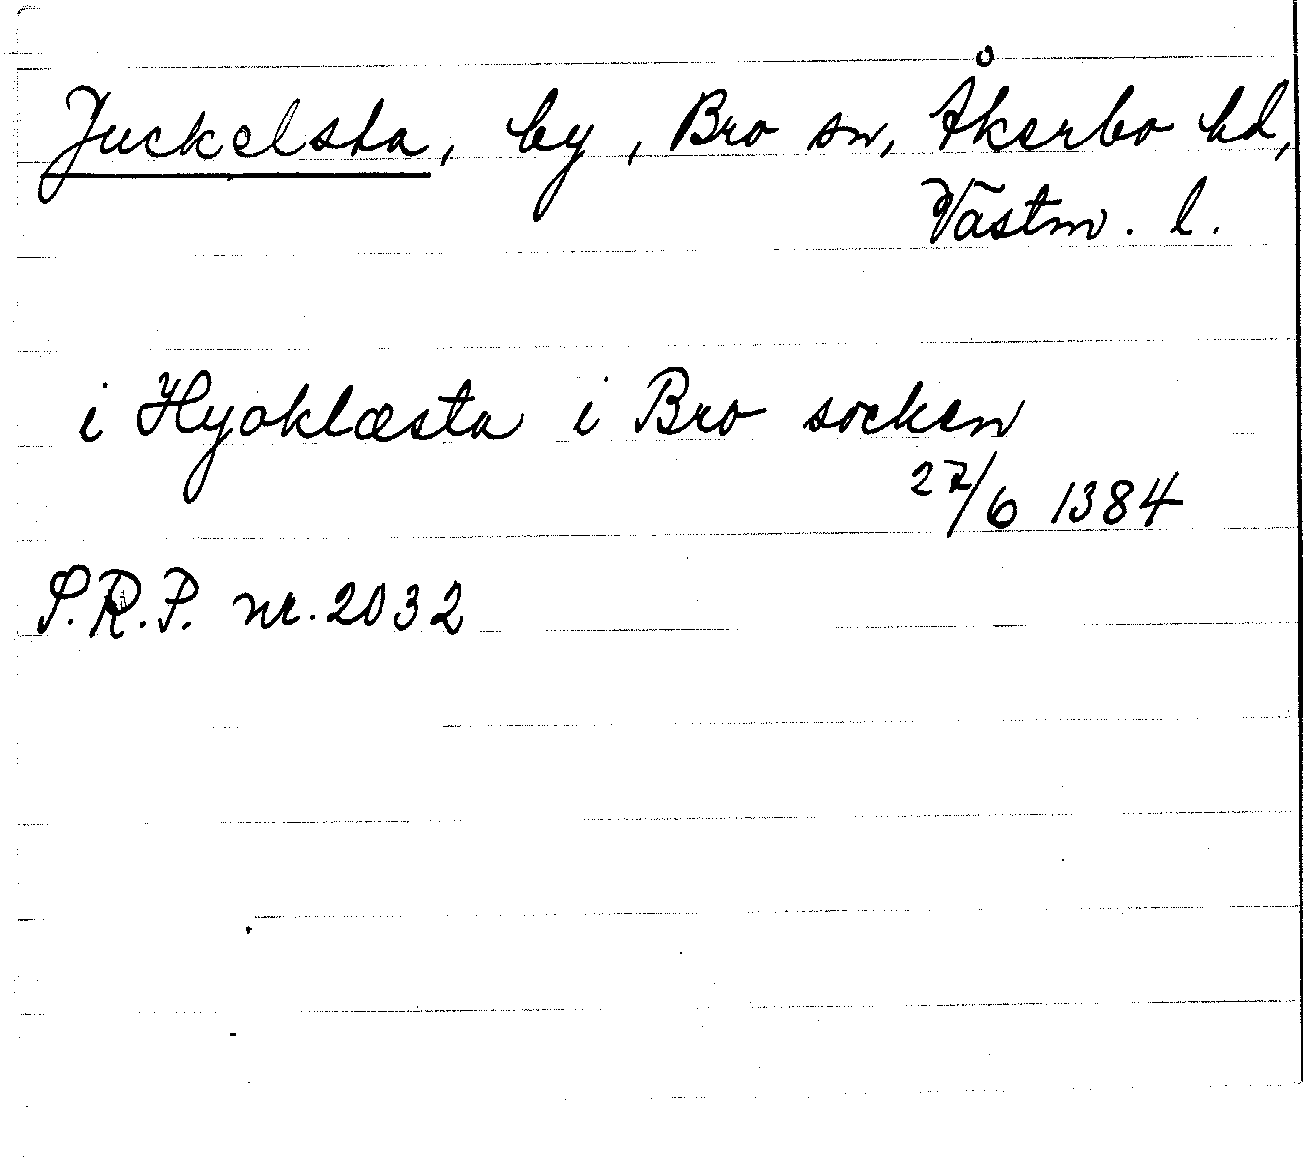 Juckelsta, by, Bro sn, Åkerbo hd,
Västm. l.
i Hyoklæsta i Bro socken
27/6 1384
S.R.P. nr. 2032